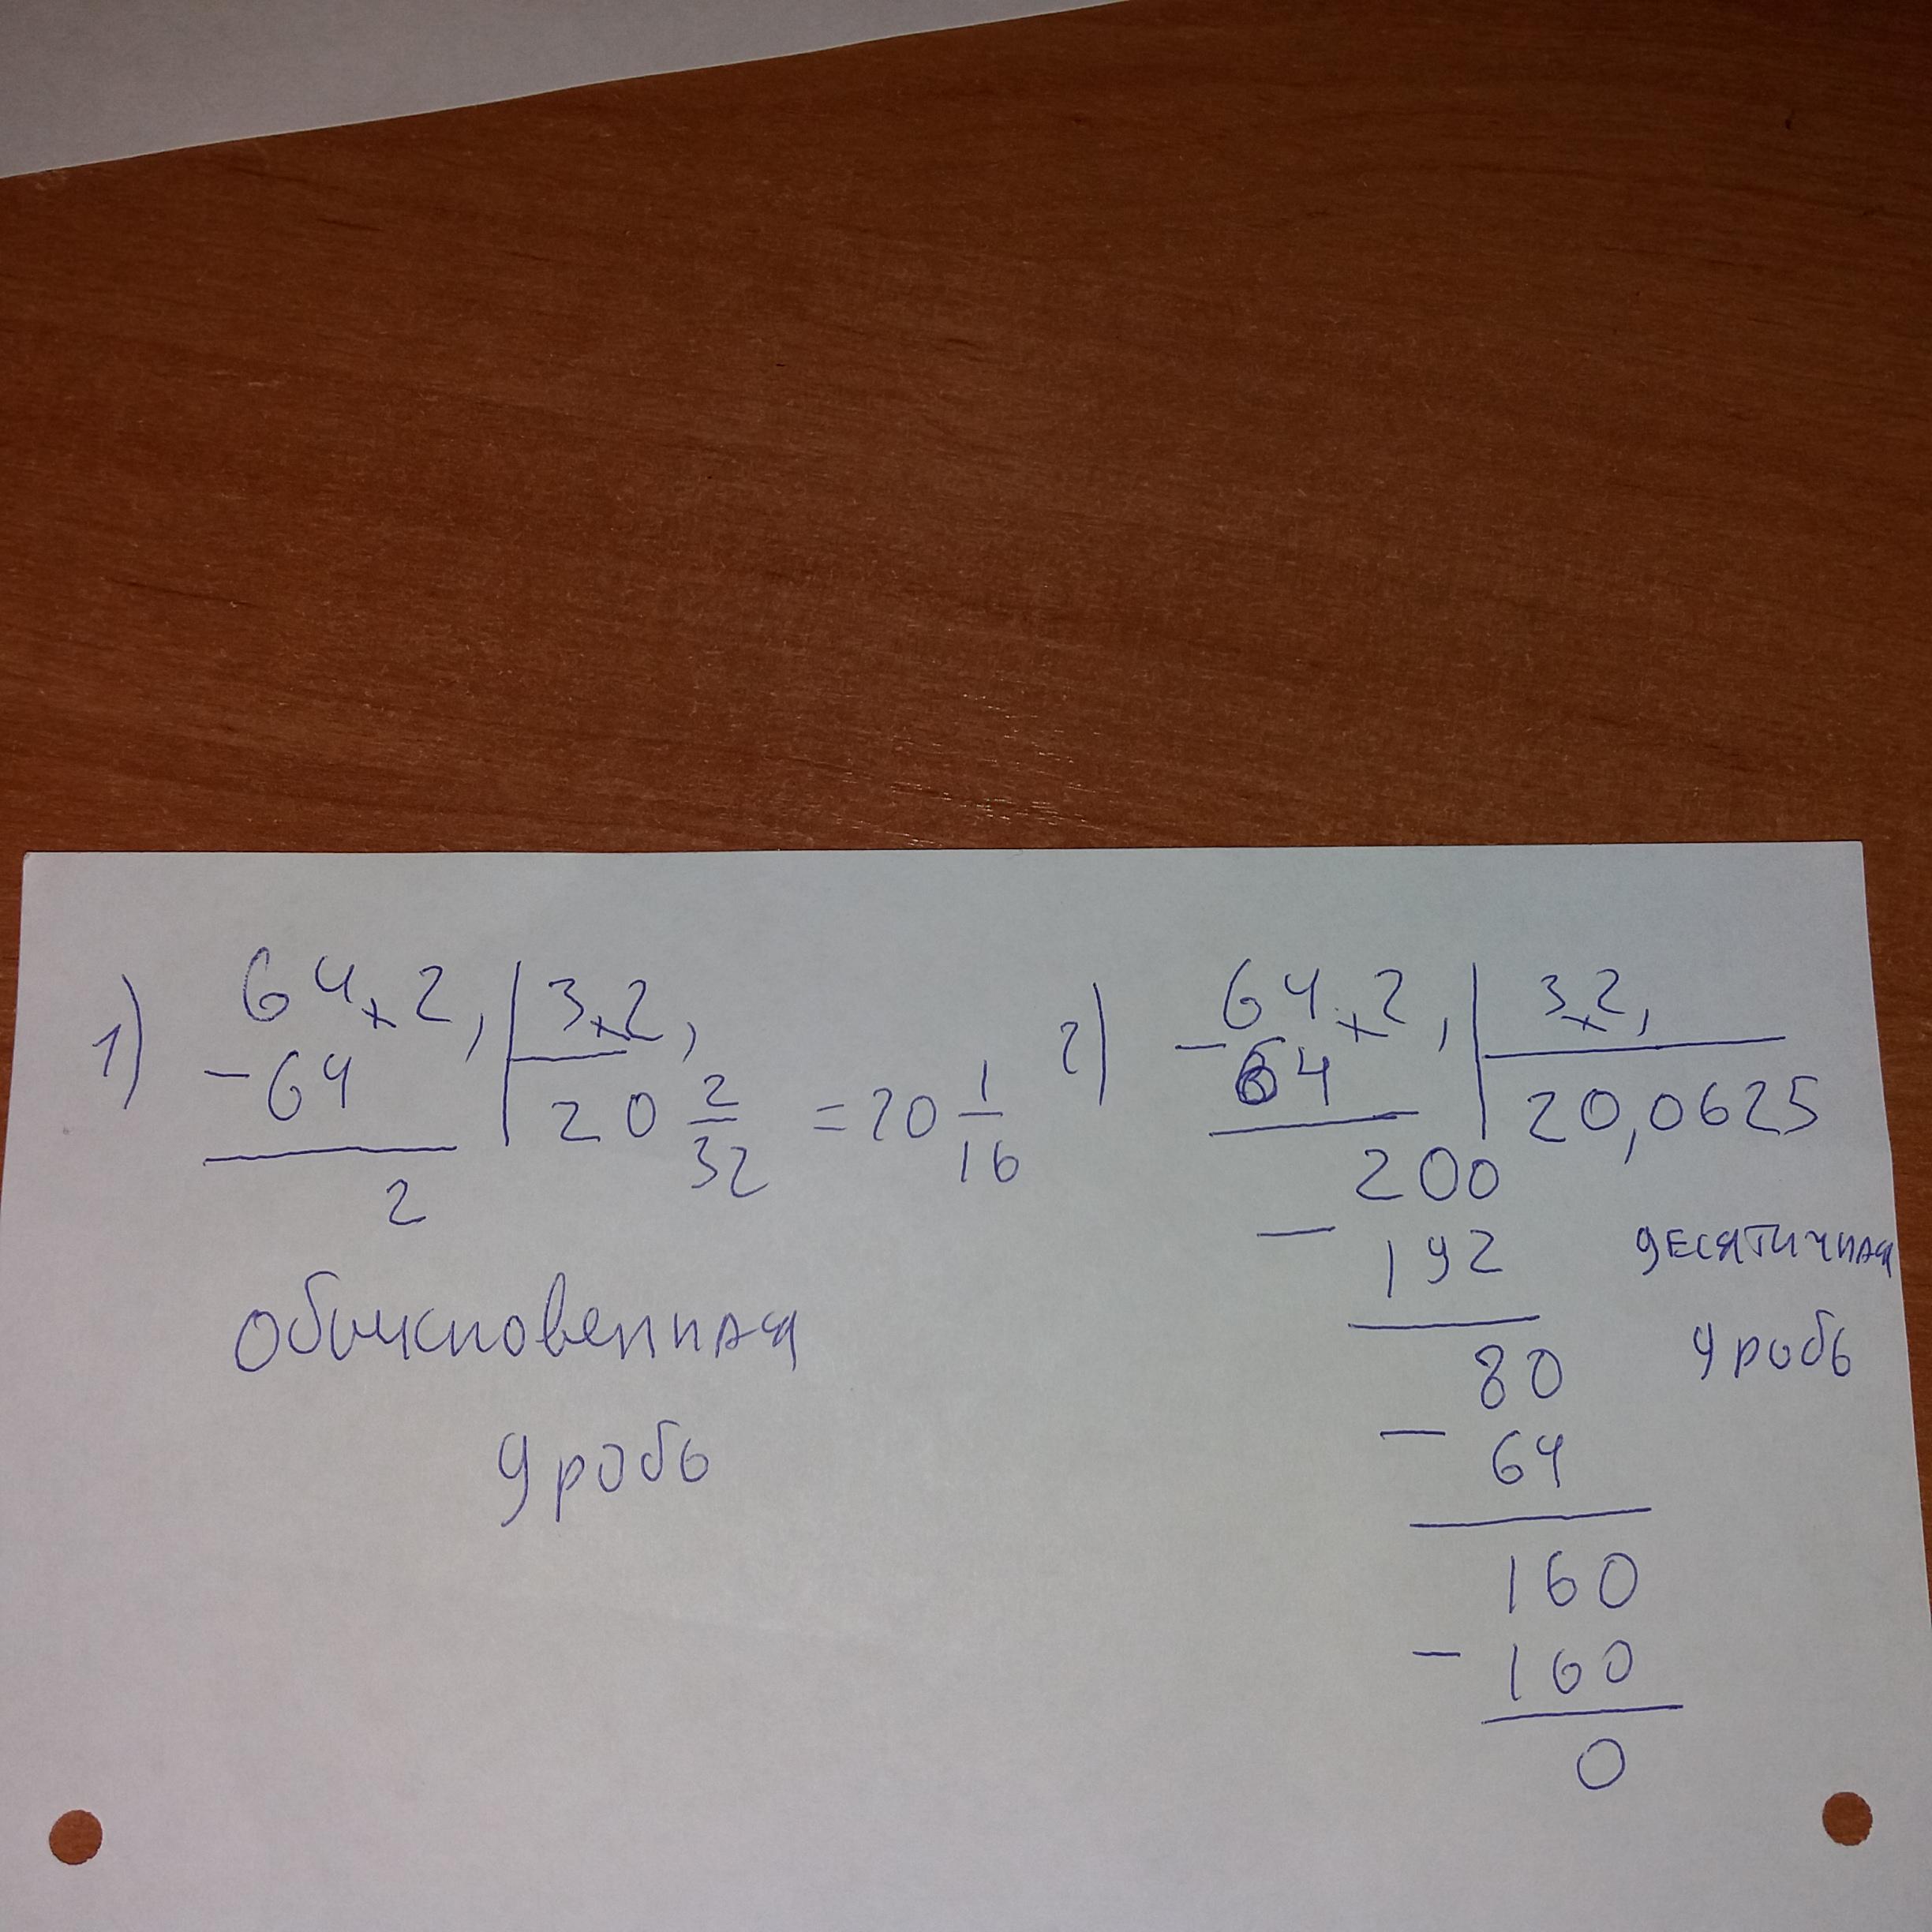 1) 64,2, | 3,2,
-64
20 2/32 = 20 1/16
2
обыкновенная
дробь
2) 64,2, | 3,2,
- 64
20,0625
200
- 192
80
- 64
160
- 160
0
десятичная
дробь